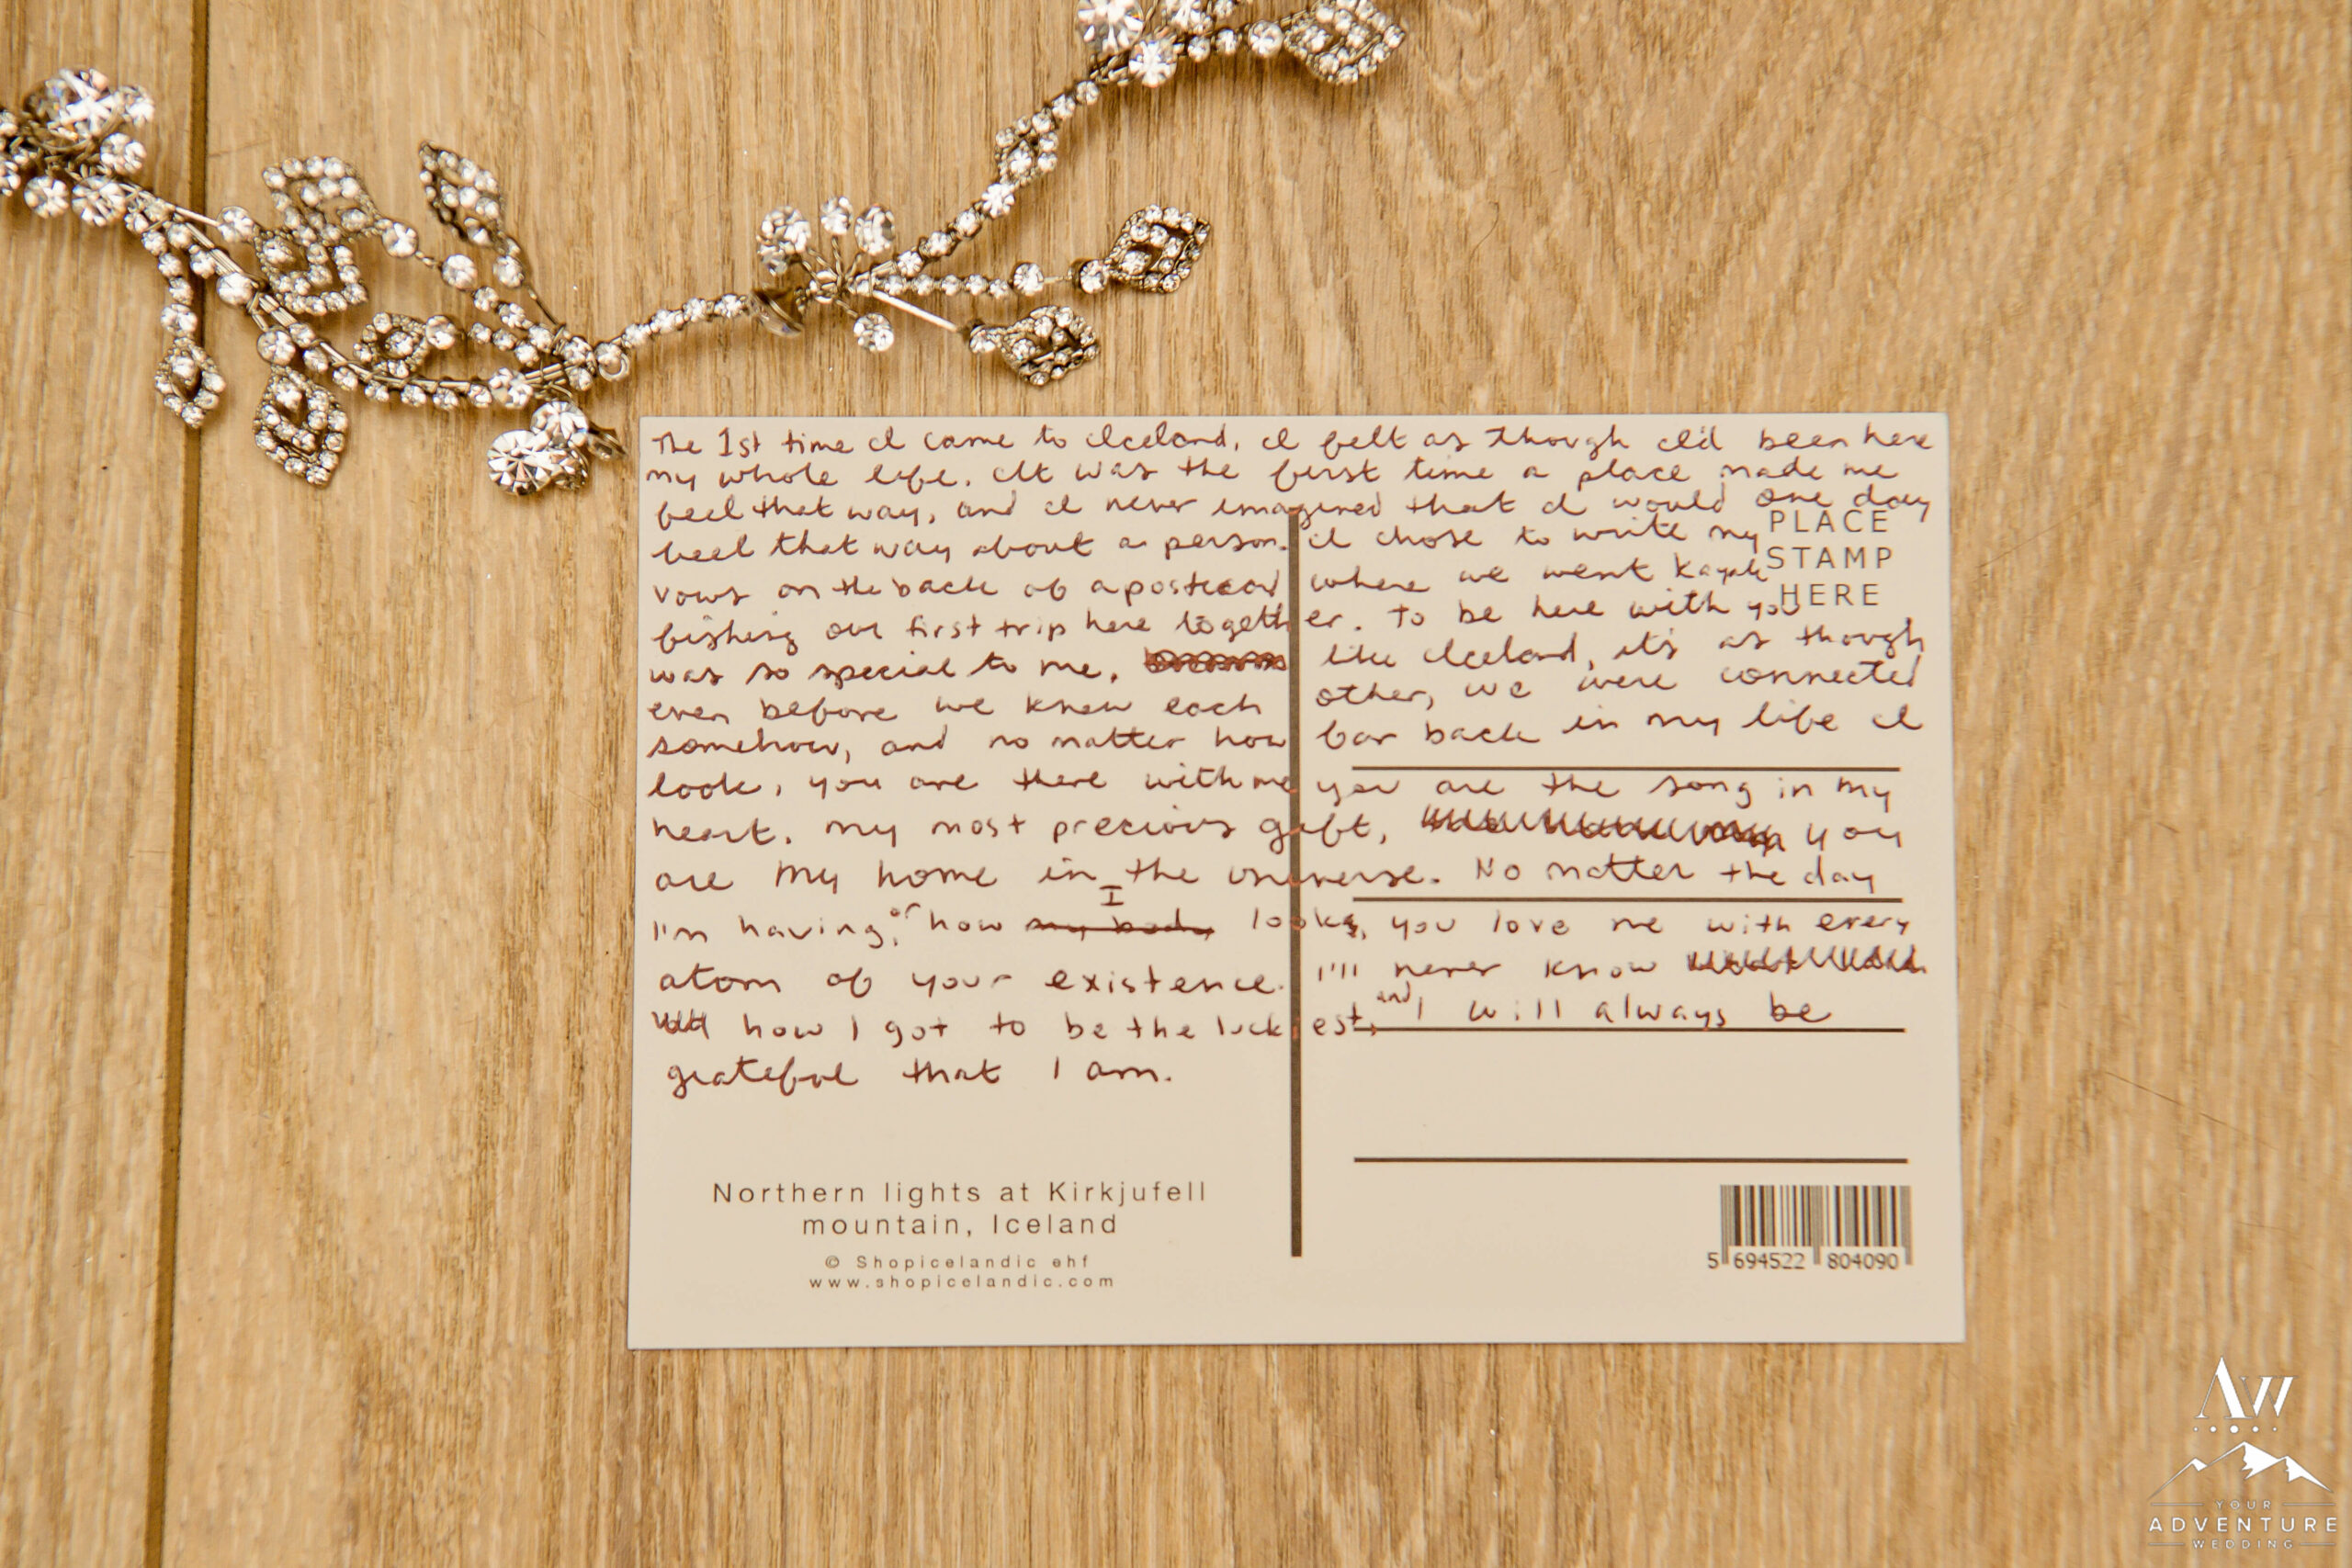 The 1st time I came to Iceland, I felt as though I'd been here
my whole life. It was the first time a place made me
feel that way, and I never imagined that I would one day
feel that way about a person. I chose to write my
vows on the back of a postcard where we went kayak
fishing our first trip here together. To be here with you
was so special to me. like Iceland, it's as though
even before we knew each other, we were connected
somehow, and no matter how far back in my life I
look, you are there with me you are the song in my
heart, my most precious gift, you
are my home in the universe. No matter the day
I'm having, or how my body I looks, you love me with every
atom of your existence. I'll never know
how I got to be the luckiest, and I will always be
grateful that I am.
PLACE
STAMP
HERE
Northern lights at Kirkjufell
mountain, Iceland
© Shopicelandic ehf
www.shopicelandic.com
5 694522 804090
AW
YOUR
ADVENTURE
WEDDING